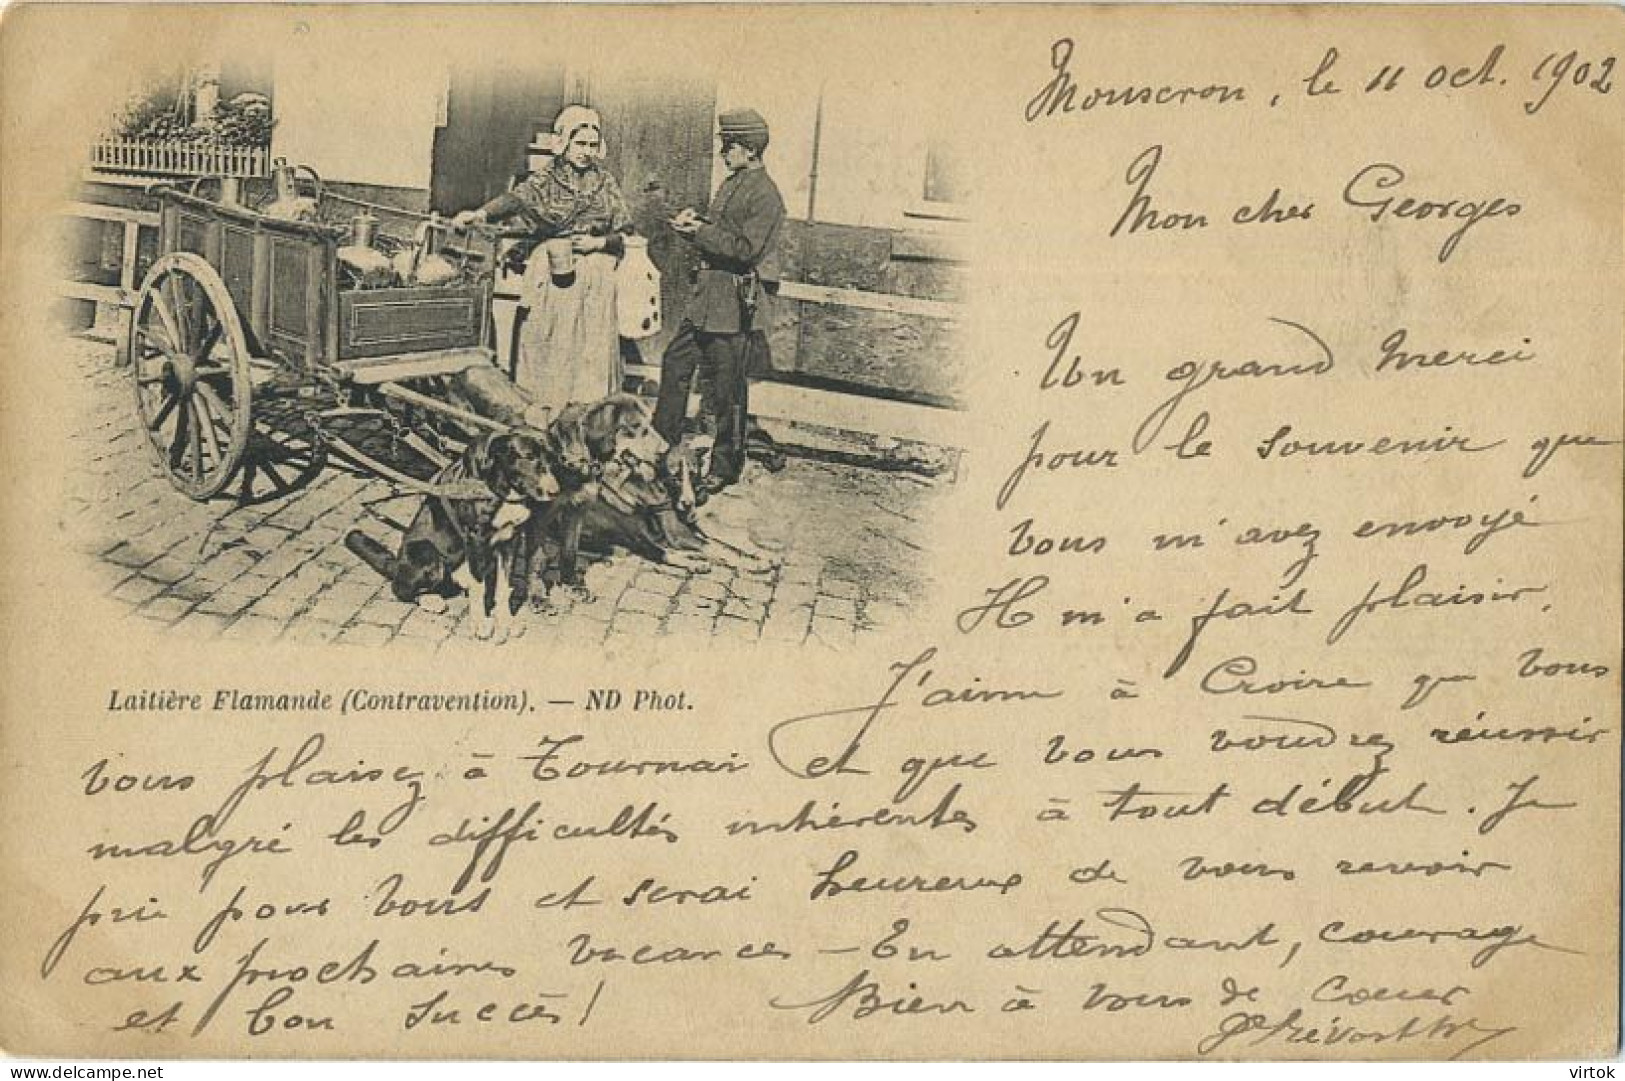 Mouscron, le 11 oct. 1902
Mon cher Georges
Un grand merci
pour le souvenir que
vous m'avez envoyé
Il m'a fait plaisir.
J'aime à Croire que vous
Laitière Flamande (Contravention). — ND Phot.
vous plaisez à Tournai et que vous voudrez réussir
malgré les difficultés inhérentes à tout début. Je
prie pour vous et serai heureux de vous revoir
aux prochaines vacances — En attendant, courage
et bon succès! Bien à vous de Coeur
delcampe.net
virtok